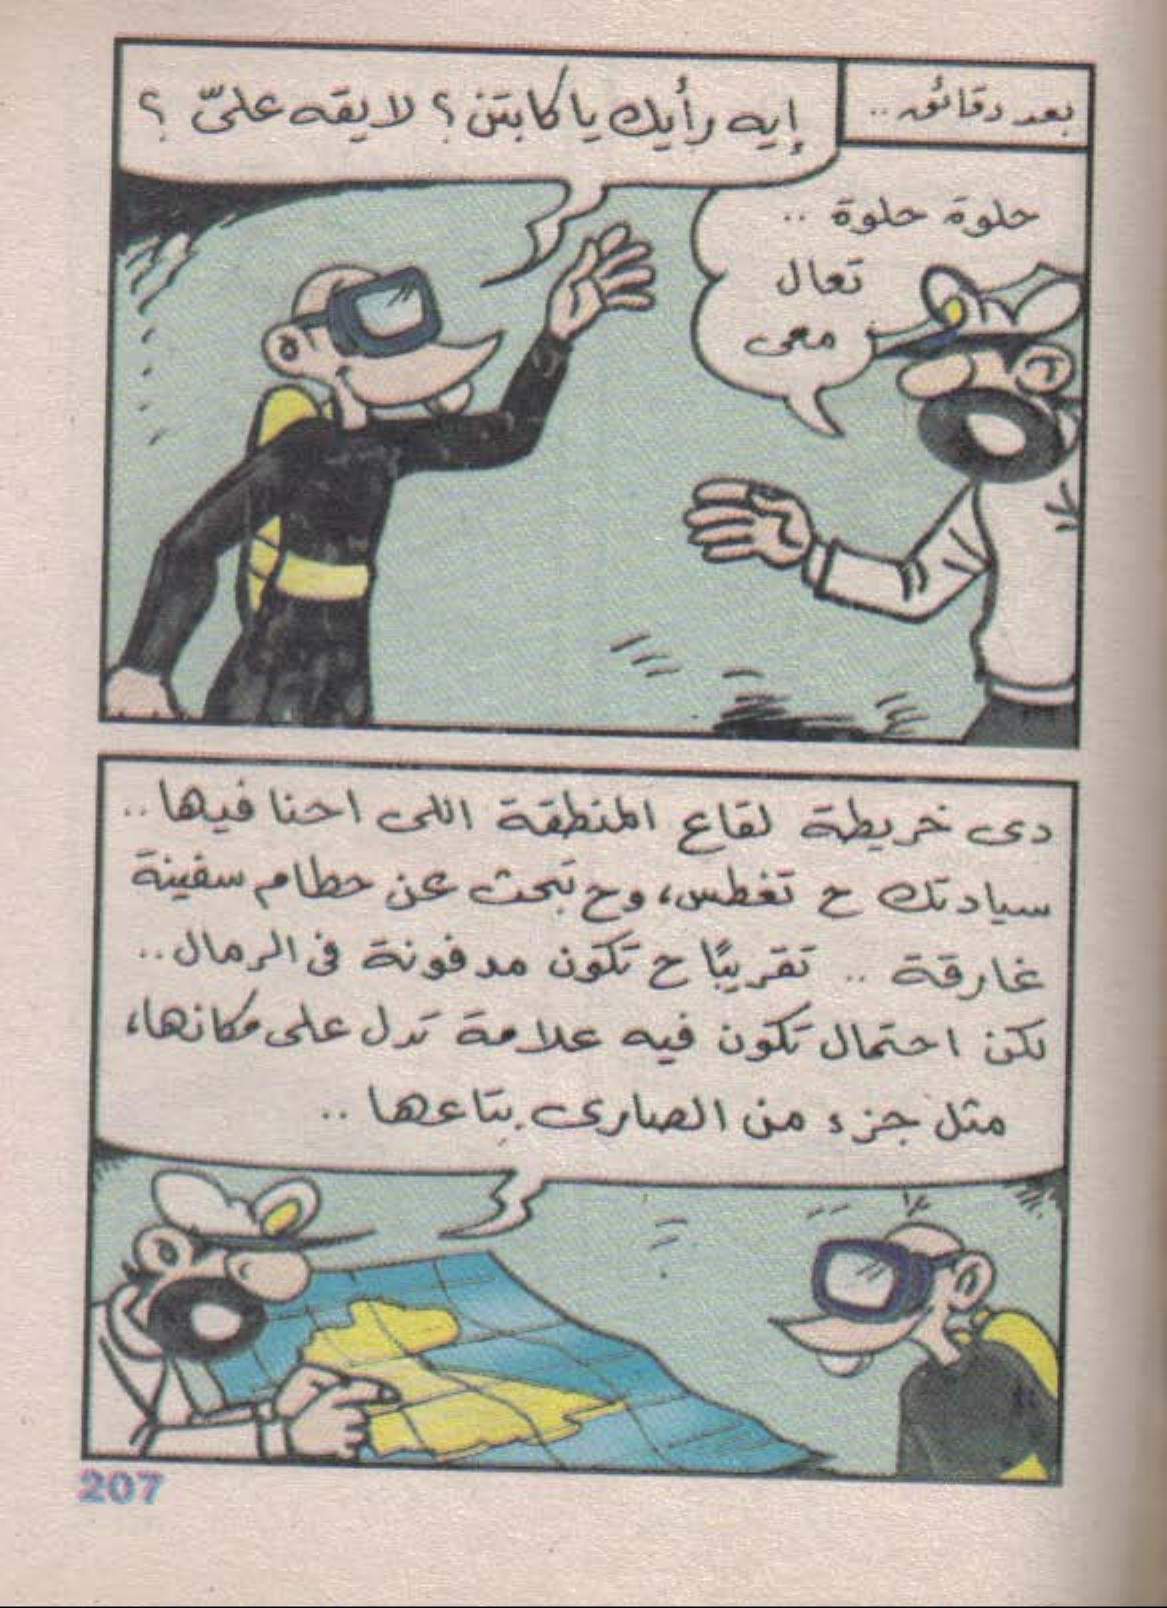 بعد دقائق..
إيه رأيك يا كابتن؟ لايقه علىّ؟
حلوة حلوة ..
تعال
معى
دى خريطة لقاع المنطقة اللى احنا فيها..
سيادتك ح تغطس، وح تبحث عن حطام سفينة
غارقة .. تقريبًا ح تكون مدفونة فى الرمال..
لكن احتمال تكون فيه علامة تدل على مكانها،
مثل جزء من الصارى بتاعها ..
207